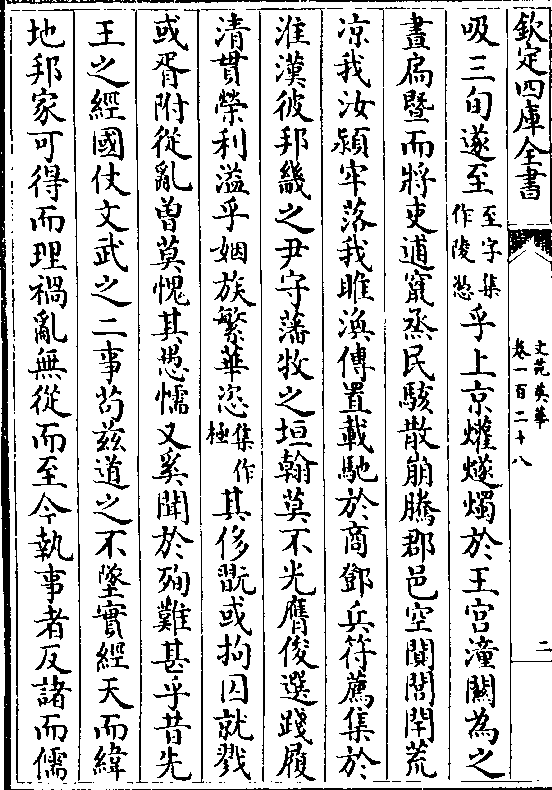 欽定四庫全書
文苑英華
卷一百二十八
二
吸三旬遂至至字集作陵愬乎上京爟燧燭於王宫潼關為之
晝扄暨而將吏逋竄烝民駭散崩騰郡邑空闃閭閈荒
凉我汝潁牢落我睢渙傳置載馳於商鄧兵符薦集於
淮漢彼邦畿之尹守藩牧之垣翰莫不光膺俊選踐履
清貫榮利溢乎姻族繁華恣集作極其侈翫或拘囚就戮
或胥附從亂曽莫愧其愚懦又奚聞於殉難甚乎昔先
王之經國仗文武之二事苟兹道之不墜實經天而緯
地邦家可得而理禍亂無從而至今執事者反諸而儒